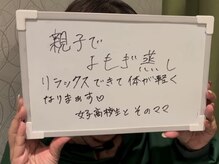 親子で
よもぎ蒸し
リラックスできて体が軽く
なりまぁす♡
女子高校生と そのママ